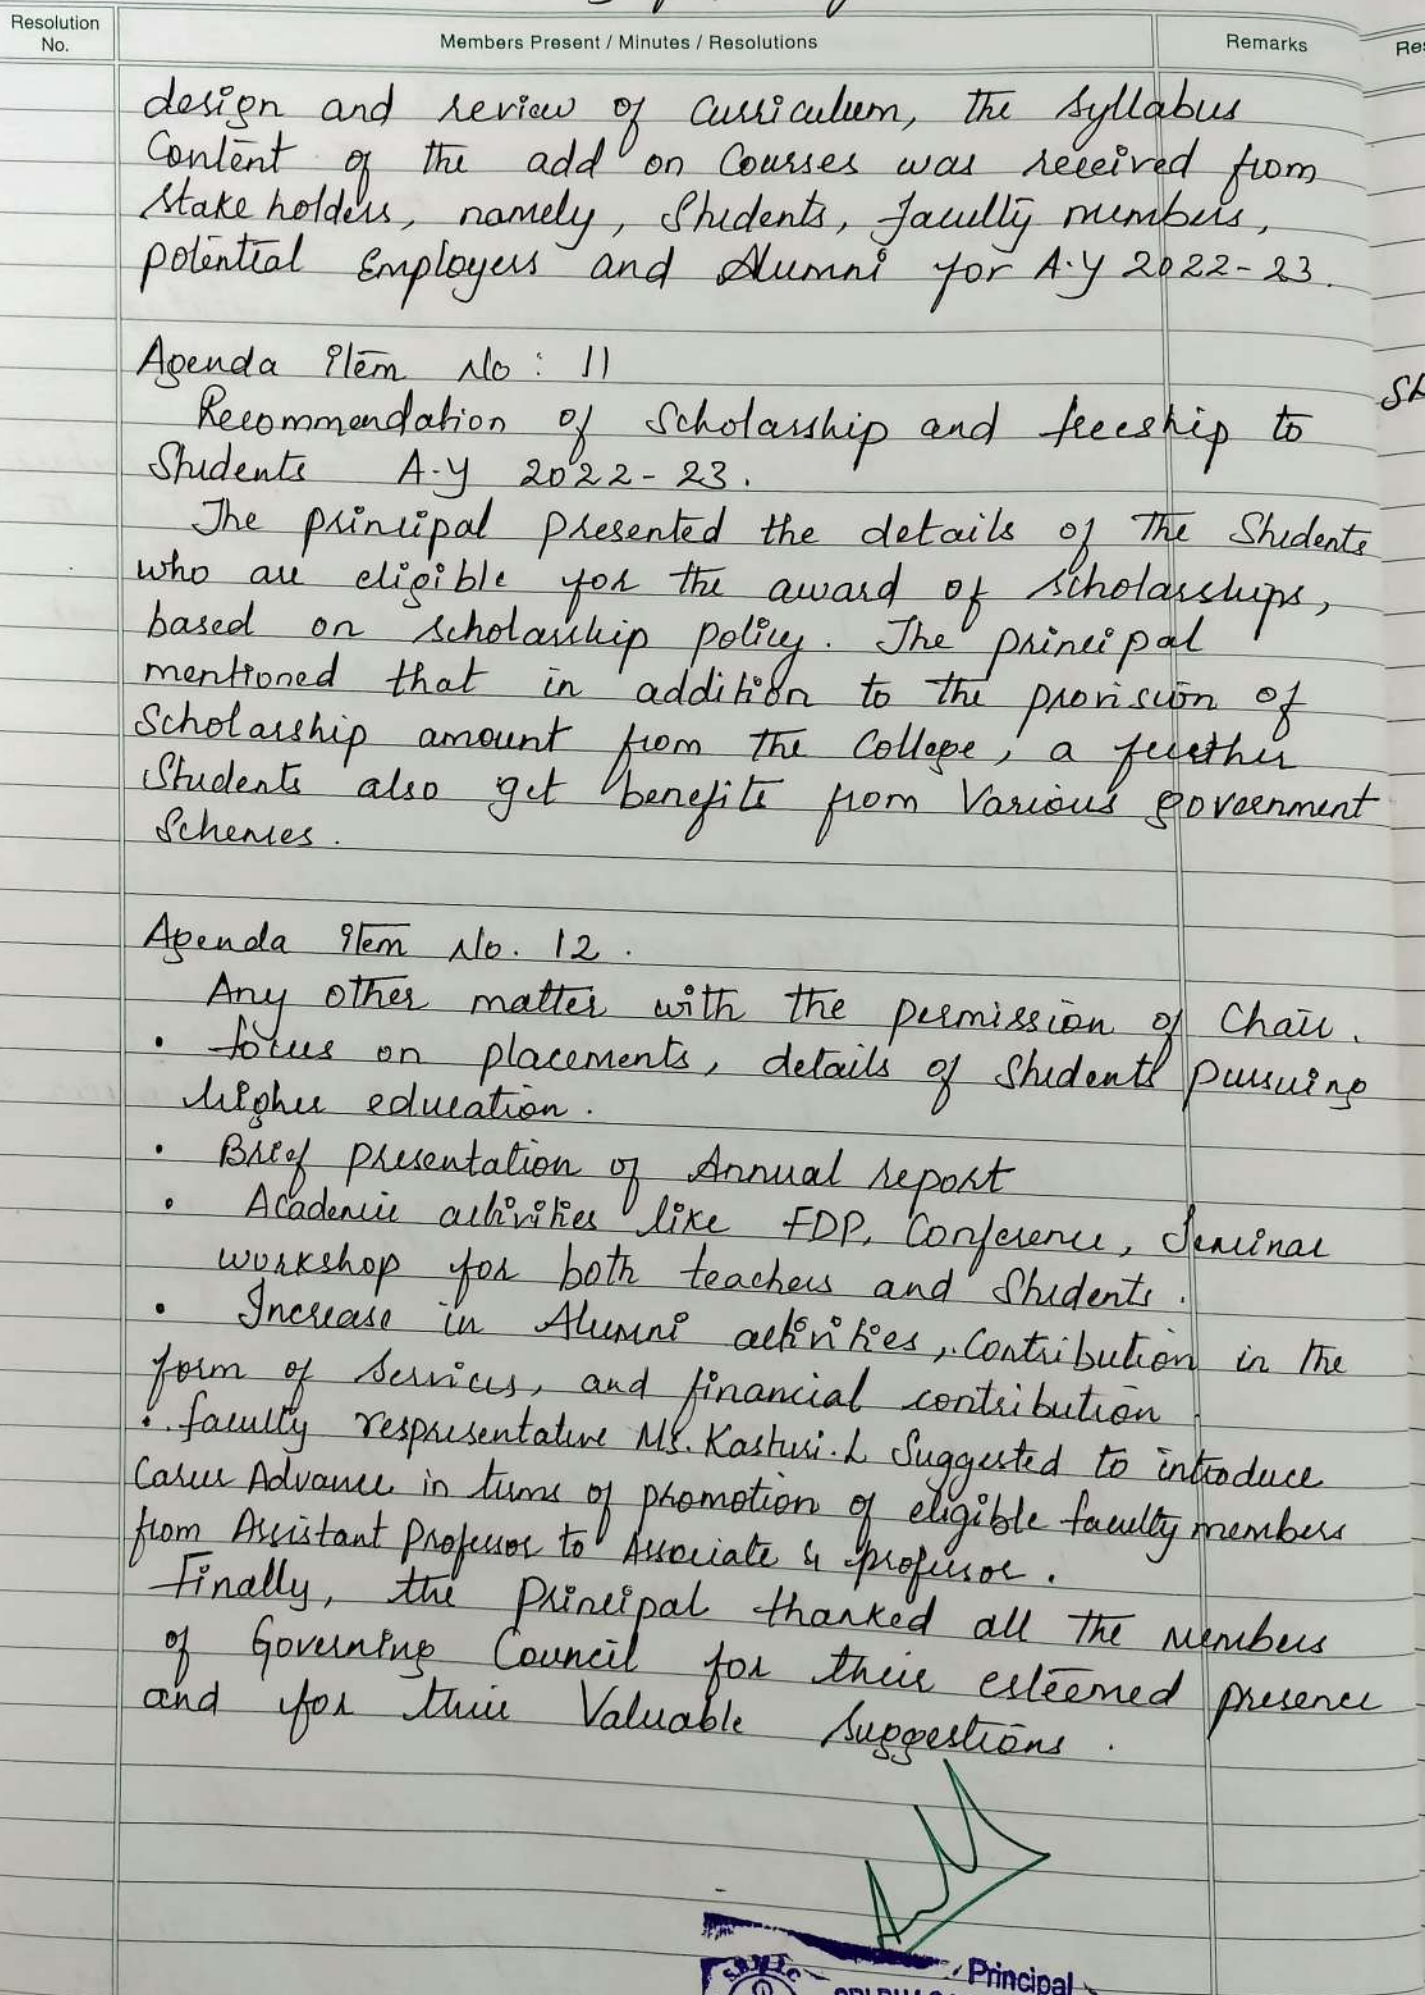 Resolution No.
Members Present / Minutes / Resolutions
Remarks
design and review of Curriculum, the syllabus
Content of the add on Courses was received from
stake holders, namely, Students, faculty members,
potential Employers and Alumni for A.Y 2022-23.
Agenda item No: 11
Recommendation of Scholarship and freeship to
Students A.Y 2022-23.
The principal presented the details of the Students
who are eligible for the award of scholarships,
based on scholarship policy. The principal
mentioned that in addition to the provision of
Scholarship amount from the College, a further
Students also get benefits from Various government
Schemes.
Agenda item No. 12.
Any other matter with the permission of Chair.
• focus on placements, details of Students pursuing
higher education.
• Brief presentation of Annual report
• Academic activities like FDP, Conference, Seminar
workshop for both teachers and Students.
• Increase in Alumni activities, Contribution in the
form of services, and financial contribution
• faculty respresentative Ms. Kasturi. L Suggested to introduce
Career Advance in terms of promotion of eligible faculty members
from Assistant Professor to Associate & professor.
Finally, the Principal thanked all the members
of Governing Council for their esteemed presence
and for their Valuable suggestions.
Principal